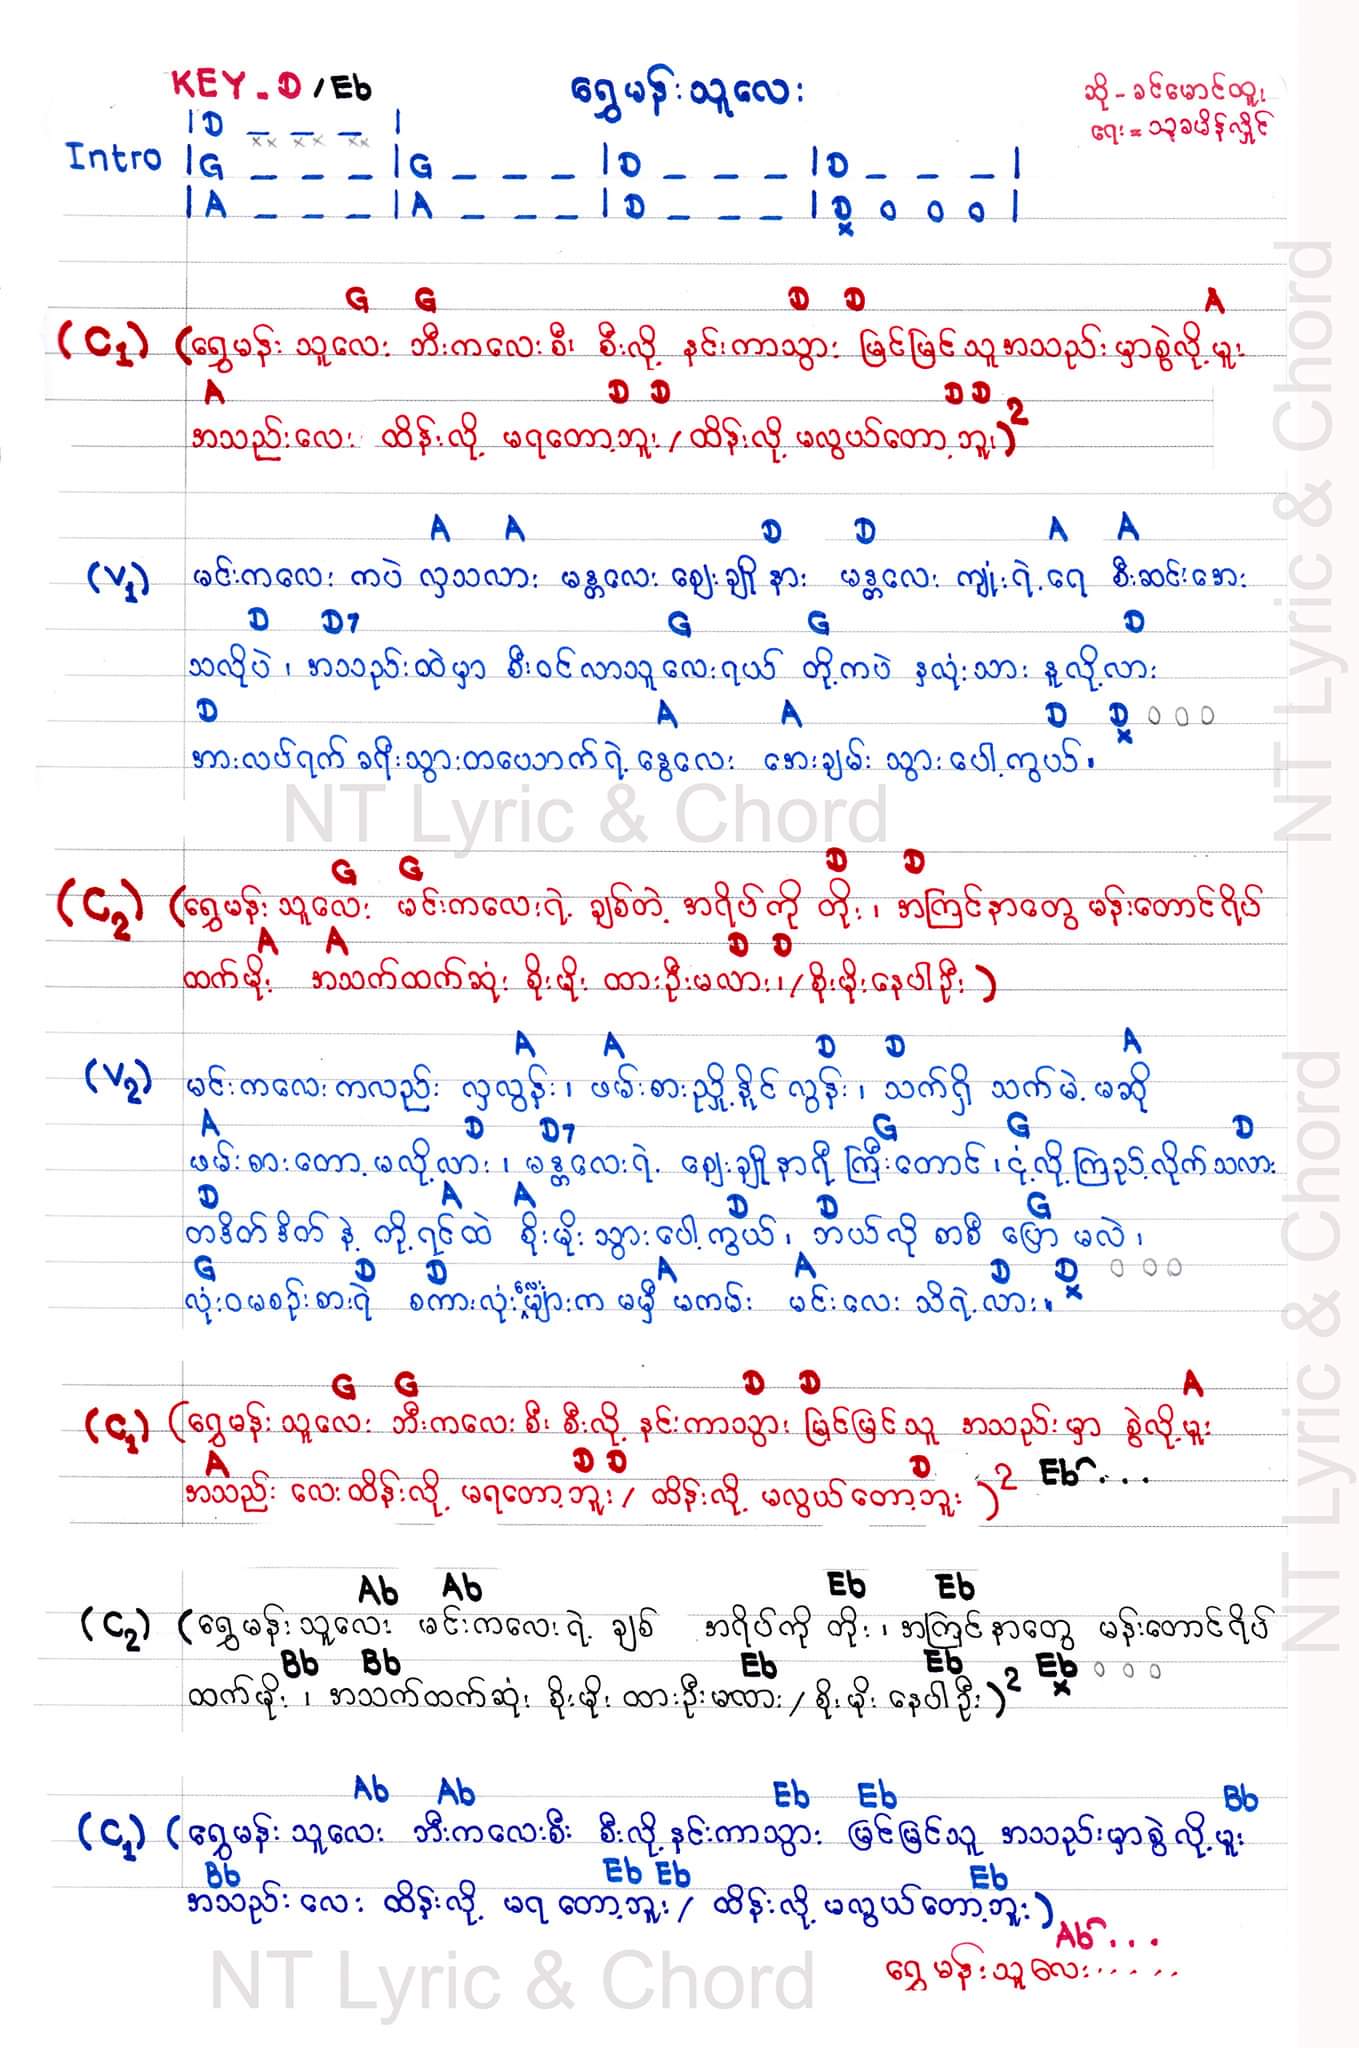 KEY - D / Eb
ရွှေမန်းသူလေး
ဆို - ခင်မောင်ထူး
ရေး = သုခမိန်လှိုင်
| D _ _ _ |
xx xx xx
Intro | G _ _ _ | G _ _ _ | D _ _ _ | D _ _ _ |
| A _ _ _ | A _ _ _ | D _ _ _ | D o o o |
x
G G D D A
(C1) (ရွှေမန်း သူလေး ဘီးကလေးစီး စီးလို့ နင်းကာသွား မြင်မြင်သူ အသည်းမှာစွဲလို့မူး
A D D D D
အသည်းလေး ထိန်းလို့ မရတော့ဘူး / ထိန်းလို့ မလွယ်တော့ဘူး)2
A A D D A A
(V1) မင်းကလေး ကပဲ လှသလား မန္တလေး ဈေးချိုနား မန္တလေး ကျုံးရဲ့ရေ စီးဆင်းအေး
D D7 G G D
သလိုပဲ ၊ အသည်းထဲမှာ စီးဝင်လာသူလေးရယ် တို့ကပဲ နှလုံးသား နုလို့လား
D A A D D o o o
x
အားလပ်ရက် ခရီးသွားတယောက်ရဲ့ နွေလေး အေးချမ်း သွားပေါ့ကွယ်။
NT Lyric & Chord
G G D D
(C2) (ရွှေမန်းသူလေး မင်းကလေးရဲ့ ချစ်တဲ့ အရိပ်ကို တိုး ၊ အကြင်နာတွေ မန်းတောင်ရိပ်
A A D D
ထက်မိုး အသက်ထက်ဆုံး စိုးမိုး ထားဦးမလား ၊ / စိုးမိုးနေပါဦး )
A A D D A
(V2) မင်းကလေးကလည်း လှလွန်း ၊ ဖမ်းစားညှို့နိုင်လွန်း ၊ သက်ရှိ သက်မဲ့ မဆို
A D D7 G G D
ဖမ်းစားတော့မလို့လား ၊ မန္တလေးရဲ့ ဈေးချိုနာရီ ကြီးတောင် ၊ ငုံ့လို့ကြည့်လိုက်သလား
D A A D D G
တဒိတ်ဒိတ်နဲ့ ကိုရင်ထဲ စိုးမိုးသွားပေါ့ကွယ် ၊ ဘယ်လို စာစီ ပြောမလဲ ၊
G D D A A D D o o o
x
လုံးဝမစဉ်းစားရဲ စကားလုံးများက မမှီ မကမ်း မင်းလေး သိရဲ့လား ။
G G D D A
(C1) (ရွှေမန်းသူလေး ဘီးကလေးစီး စီးလို့ နင်းကာသွား မြင်မြင်သူ အသည်းမှာ စွဲလို့မူး
A D D D
အသည်းလေးထိန်းလို့ မရတော့ဘူး / ထိန်းလို့ မလွယ်တော့ဘူး )2 Eb ...
Ab Ab Eb Eb
(C2) (ရွှေမန်းသူလေး မင်းကလေးရဲ့ ချစ် အရိပ်ကို တိုး ၊ အကြင်နာတွေ မန်းတောင်ရိပ်
Bb Bb Eb Eb Eb o o o
x
ထက်မိုး ၊ အသက်ထက်ဆုံး စိုးမိုး ထားဦးမလား / စိုးမိုး နေပါဦး)2
Ab Ab Eb Eb Bb
(C1) (ရွှေမန်းသူလေး ဘီးကလေးစီး စီးလို့ နင်းကာသွား မြင်မြင်သူ အသည်းမှာစွဲလို့မူး
Bb Eb Eb Eb
အသည်းလေး ထိန်းလို့ မရတော့ဘူး / ထိန်းလို့ မလွယ်တော့ဘူး)
Ab ...
ရွှေမန်းသူလေး.....
NT Lyric & Chord
NT Lyric & Chord
NT Lyric & Chord